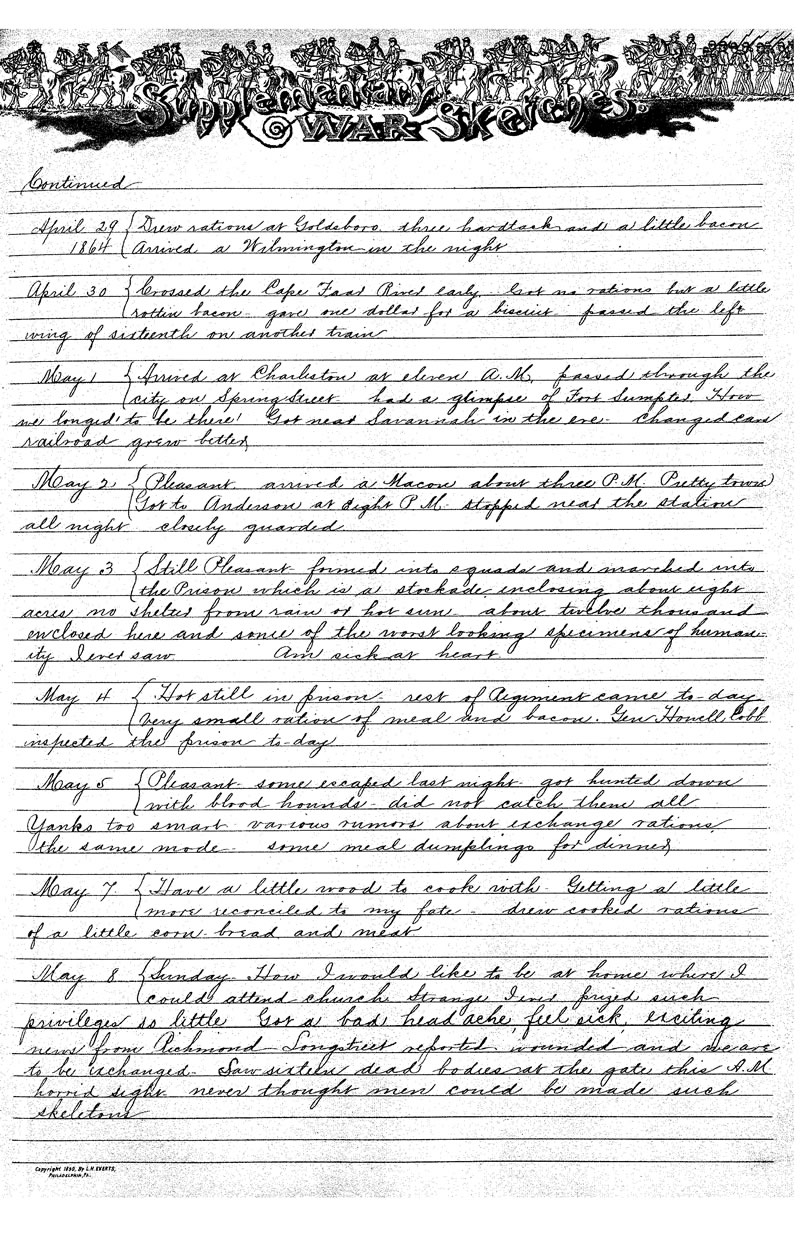 Supplementary
WAR Sketches.
Continued
April 29 Drew rations at Goldsboro. three hardtack and a little bacon
1864 Arrived a Wilmington in the night
April 30 Crossed the Cape Faar River early. Got no rations but a little
rottin bacon - gave one dollar for a biscuit - passed the left
wing of sixteenth on another train
May 1 Arrived at Charleston at eleven A.M. passed through the
city on Spring Street - had a glimpse of Fort Sumpter. How
we longed to be there! Got near Savannah in the eve - changed cars
railroad grew better
May 2 Pleasant - arrived a Macon about three P.M. Pretty town
Got to Anderson at eight P.M. stopped near the station
all night - closely guarded
May 3 Still Pleasant - formed into squads and marched into
the Prison which is a stockade, enclosing about eight
acres no shelter from rain or hot sun - about twelve thousand
enclosed here and some of the worst looking specimens of human-
ity I ever saw Am sick at heart
May 4 Hot still in prison - rest of Regiment came to-day
very small ration of meal and bacon. Gen Howell Cobb
inspected the prison to-day
May 5 Pleasant - some escaped last night - got hunted down
with blood hounds - did not catch them all
Yanks too smart - various rumors about exchange rations
the same mode - some meal dumplings for dinner
May 7. Have a little wood to cook with - Getting a little
more reconciled to my fate - drew cooked rations
of a little corn-bread and meat
May 8 Sunday - How I would like to be at home where I
could attend church Strange I ever prized such
privileges so little Got a bad head ache, feel sick, exciting
news from Richmond - Longstreet reported wounded and we are
to be exchanged - Saw sixteen dead bodies at the gate this A.M.
horrid sight - never thought men could be made such
skeletons
Copyright 1890, By L.H. EVERTS,
PHILADELPHIA, PA.